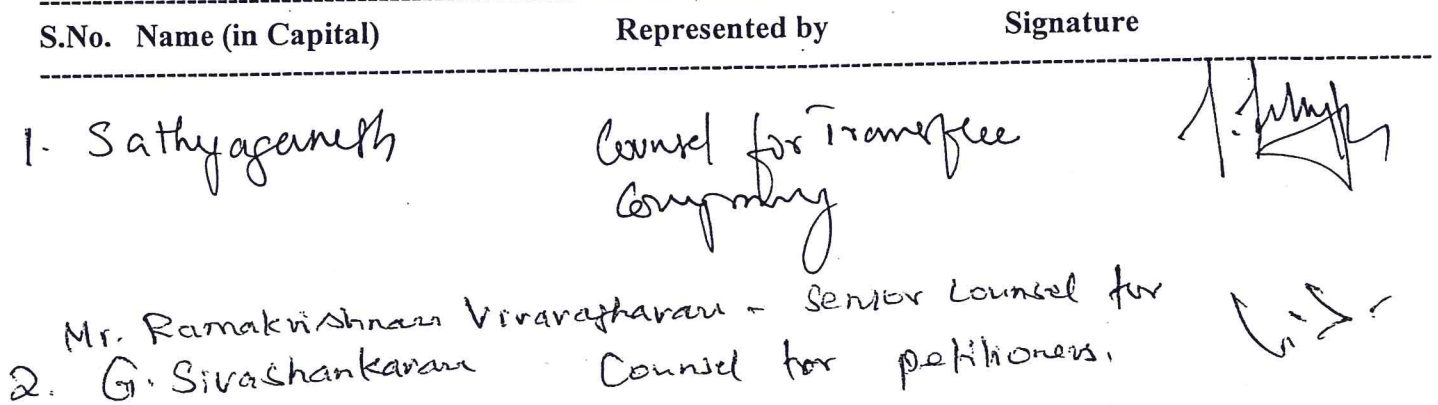 S.No. Name (in Capital) Represented by Signature
1. Sathyaganesh Counsel for Transferee
Company
Mr. Ramakrishnan Viraraghavan - Senior Counsel for
2. G. Sivashankaran Counsel for petitioners.